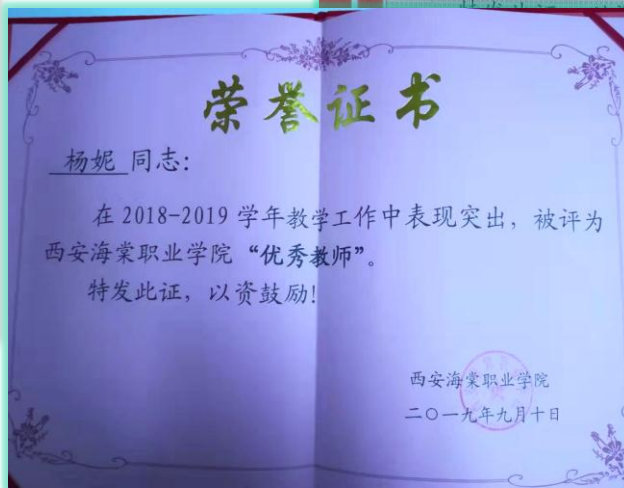 荣誉证书
杨妮 同志：
在 2018-2019 学年教学工作中表现突出，被评为
西安海棠职业学院“优秀教师”。
特发此证，以资鼓励！
西安海棠职业学院
二〇一九年九月十日